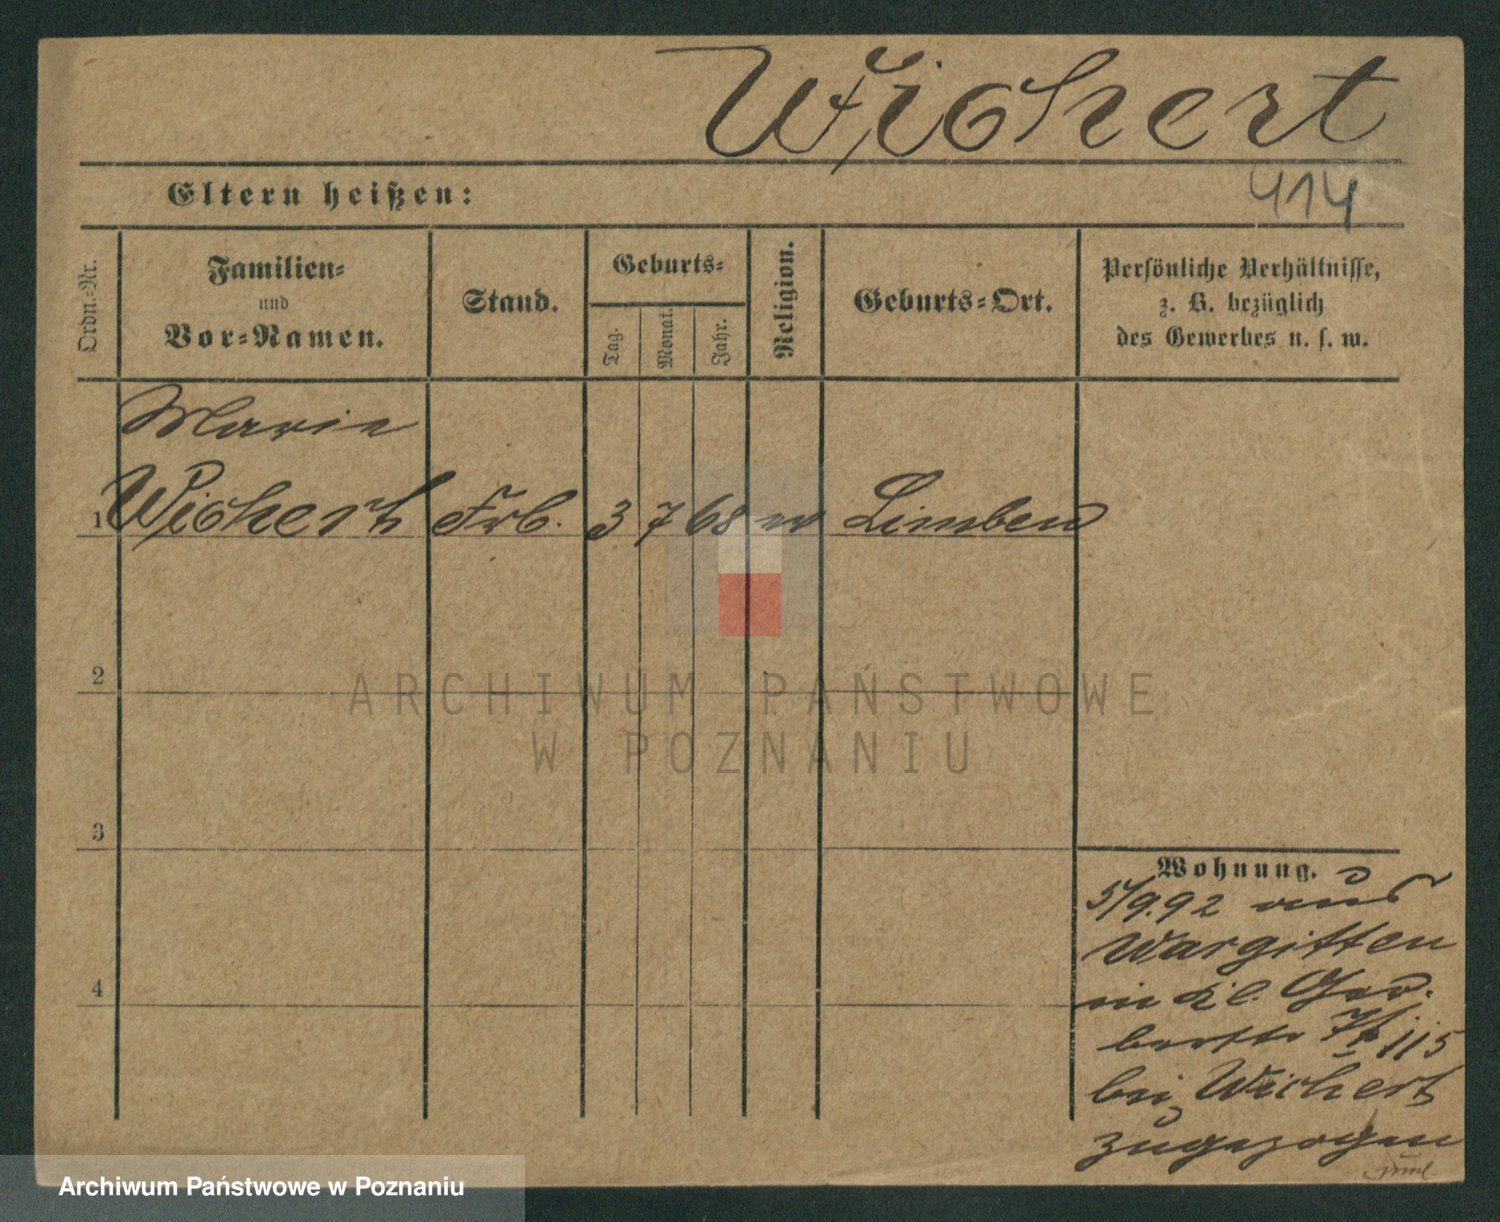 Wichert
Eltern heißen:
414
Ordn.-Nr.
Familien-
und
Vor-Namen.
Stand.
Geburts-
Tag.
Monat.
Jahr.
Religion.
Geburts-Ort.
Persönliche Verhältnisse,
z. B. bezüglich
des Gewerbes u. s. w.
Marie
1 Wichert Frb. 3 7 68 ev Limben
2
3
4
Wohnung.
5/9.92 aus
Wargitten
in Kl. Ger-
berstr 7/8 jj5
bei Wichert
zugezogen
ARCHIWUM PAŃSTWOWE
W POZNANIU
Archiwum Państwowe w Poznaniu